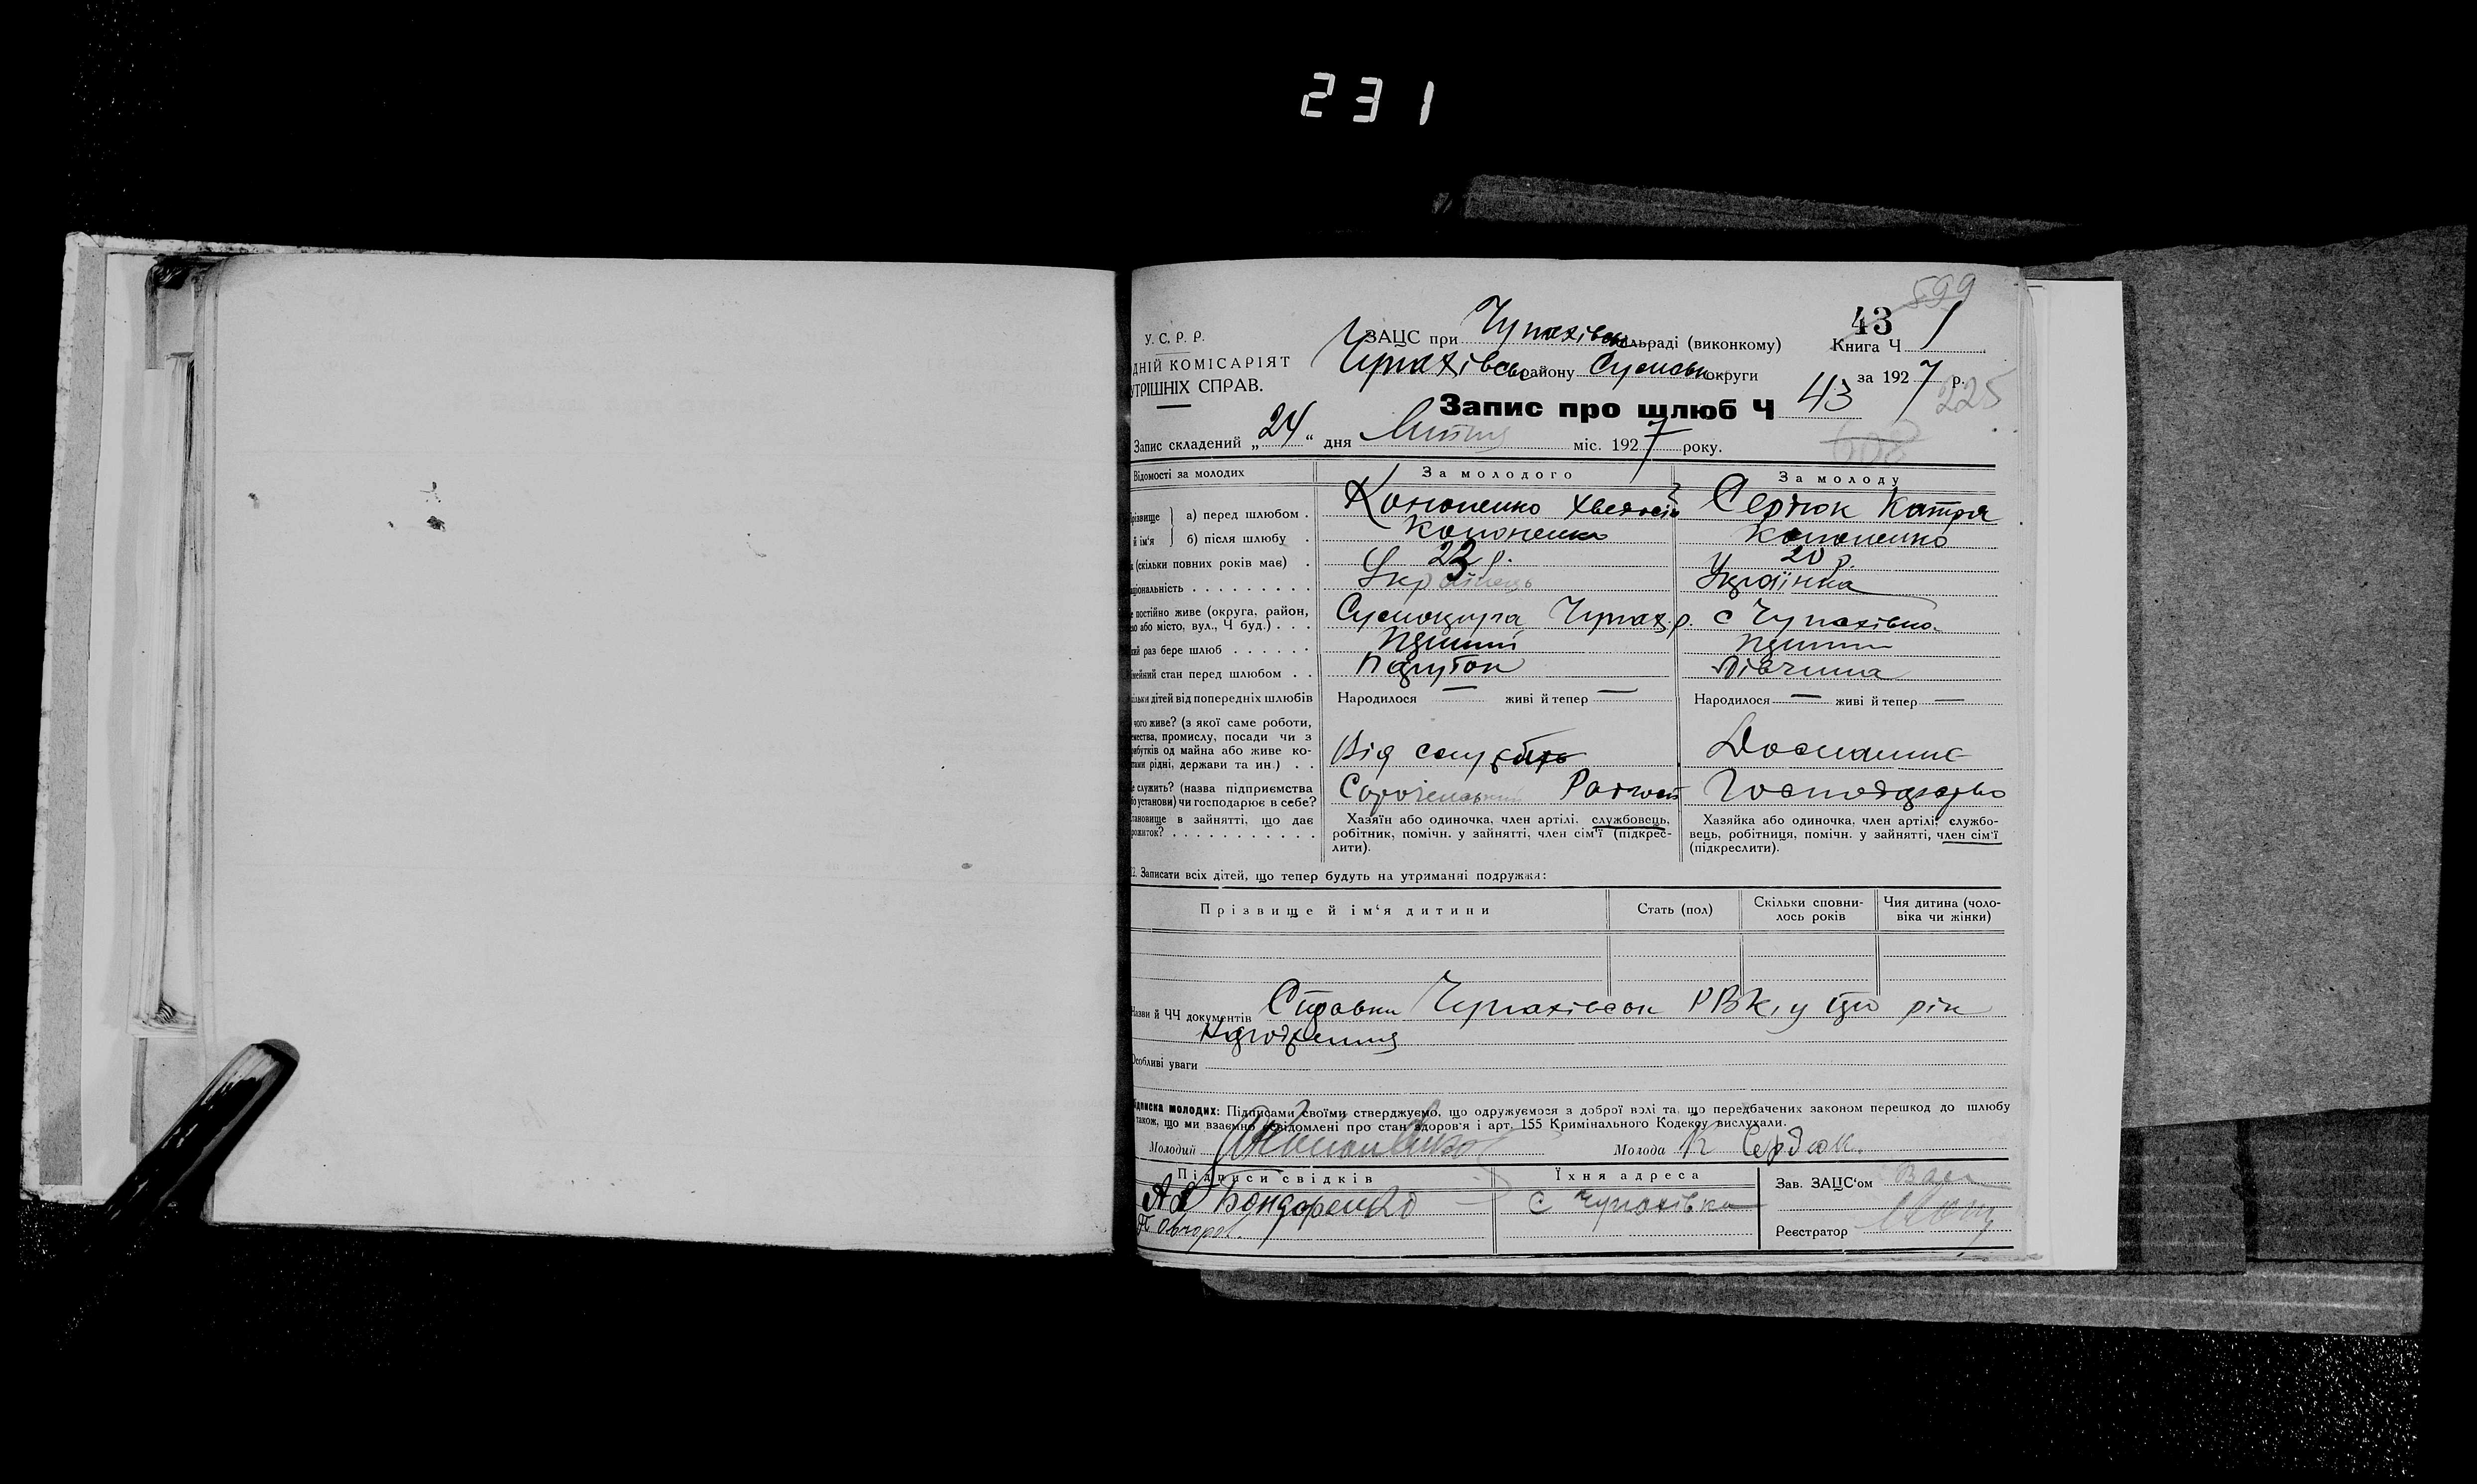 231
599
У. С. Р. Р.
ЗАЦС при Чупахівськ сільраді (виконкому)
43
Книга Ч 1
ДНІЙ КОМІСАРІЯТ
Чупахівськ району Сумськ округи
за 1927 р.
УТРІШНІХ СПРАВ.
Запис про шлюб Ч 43
225
Запис складений „24“ дня Липня міс. 1927 року.
Відомості за молодих
За молодого
За молоду
різвище й ім'я
а) перед шлюбом .
Кононенко
Сердюк Катря
б) після шлюбу .
Кононенко
Кононенко
(скільки повних років має) .
23 р.
20 р.
ціональність . . . . . . . . .
Українець
Українка
постійно живе (округа, район,
або місто, вул., Ч буд.) . . .
Сумокруга Чупах. р.
с Чупахівка
раз бере шлюб . . . . . .
Перший
Перший
мейний стан перед шлюбом . .
Парубок
Дівчина
ільки дітей від попередніх шлюбів
Народилося — живі й тепер —
Народилося — живі й тепер —
чого живе? (з якої саме роботи,
мества, промислу, посади чи з
рибутків од майна або живе ко-
тами рідні, держави та ин.) . .
Від служби
Домашнє
е служить? (назва підприємства
бо установи) чи господарює в себе?
Господарство
тановище в зайнятті, що дає
рожиток? . . . . . . . . . . .
Хазяїн або одиночка, член артілі, службовець,
робітник, помічн. у зайнятті, член сім'ї (підкрес-
лити).
Хазяйка або одиночка, член артілі, службо-
вець, робітниця, помічн. у зайнятті, член сім'ї
(підкреслити).
2. Записати всіх дітей, що тепер будуть на утриманні подружжя:
Прізвище й ім'я дитини
Стать (пол)
Скільки сповни-
лось років
Чия дитина (чоло-
віка чи жінки)
Назви й ЧЧ документів
Справки Чупахівськ РВК, у рік
народження
Особливі уваги
ідписка молодих: Підписами своїми стверджуємо, що одружуємося з доброї волі та, що передбачених законом перешкод до шлюбу
також, що ми взаємно освідомлені про стан здоров'я і арт. 155 Кримінального Кодексу вислухали.
Молодий
Молода К Сердюк.
Підписи свідків
Їхня адреса
Зав. ЗАЦС'ом
Бондаренко
с Чупахівка
Реєстратор